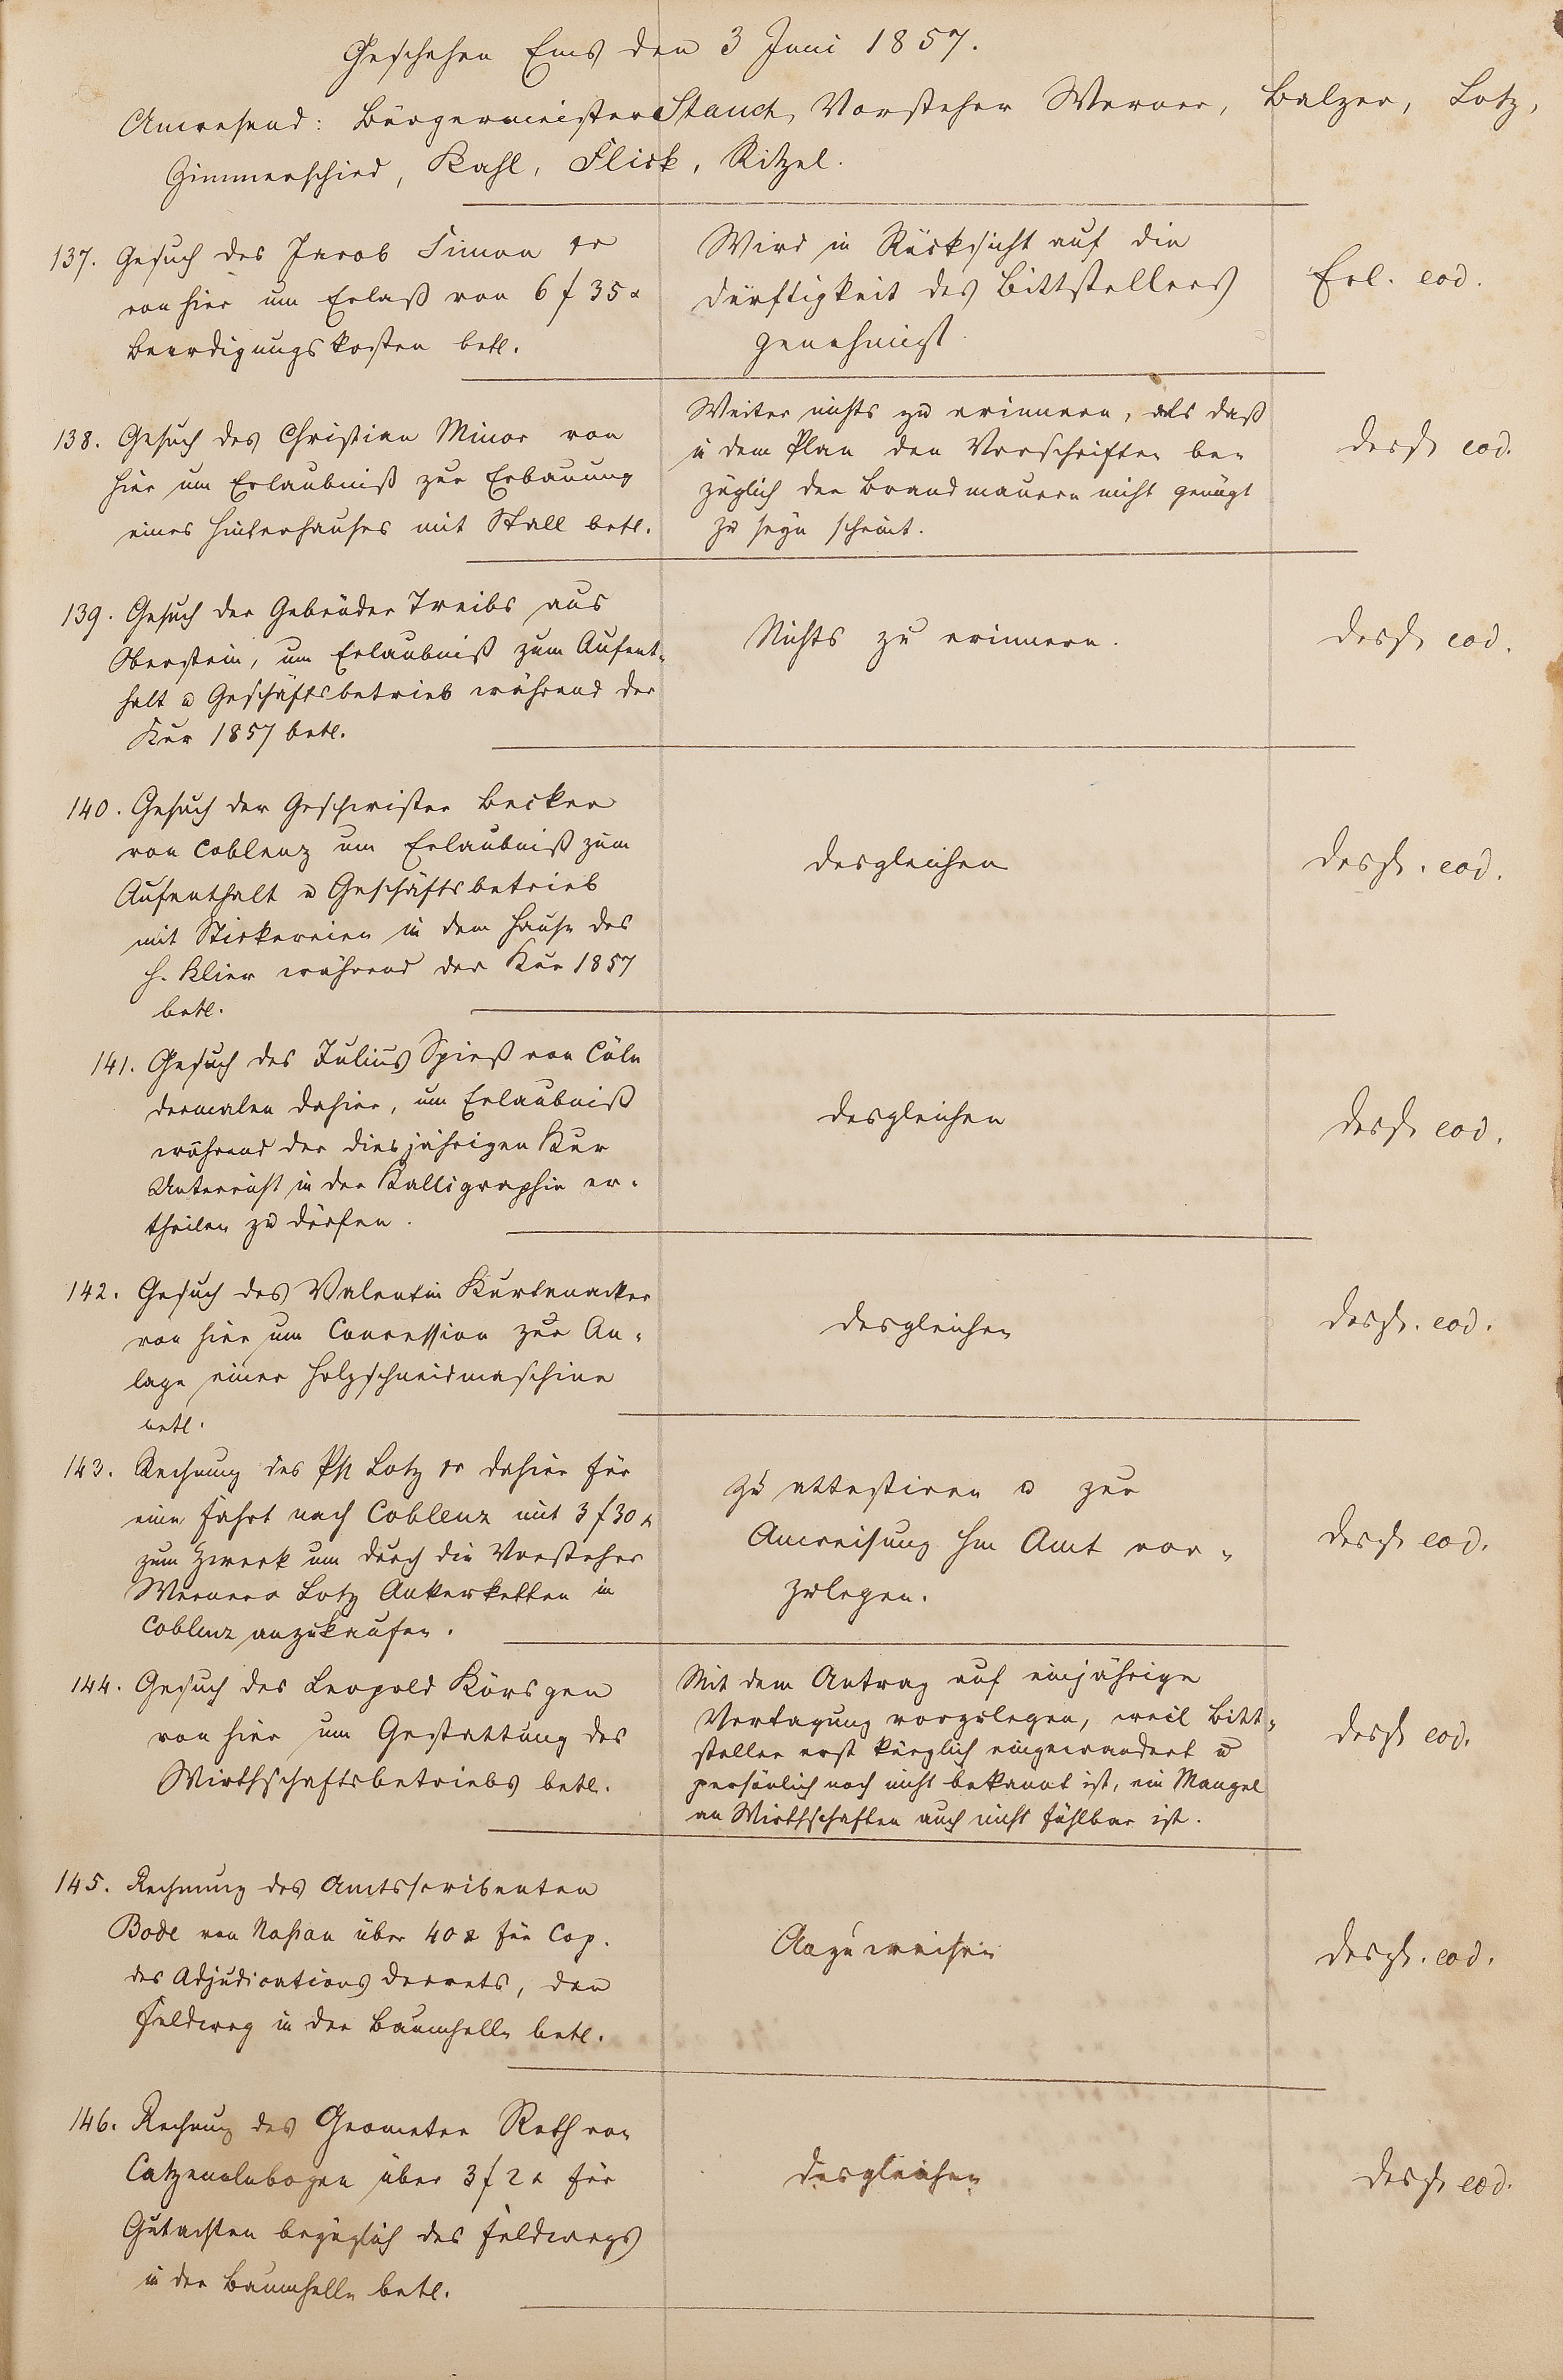 Geschehen Ems den 3 Juni 1857.
Anwesend: Bürgermeister Stauch, Vorsteher Werner, Balzer, Lotz,
Gimmerschied, Kahl, Flick, Ritzel.
137. Gesuch des Jacob Simon
von hier um Erlaß von 6 f 35 x
Beerdigungskosten betl.
Wird in Rücksicht auf die
Dürftigkeit des Bittstellers
genehmigt
Erl. eod.
138. Gesuch des Christian Minor von
hier um Erlaubniß zur Erbauung
eines Hinterhauses mit Stall betl.
Weiter nichts zu erinnern, als daß
in dem Plan den Vorschriften be-
züglich der Brandmauern nicht genügt
zu seyn scheint.
desgl. eod.
139. Gesuch der Gebrüder Treibs aus
Oberstein, um Erlaubniß zum Aufent-
halt u Geschäftsbetrieb während der
Kur 1857 betl.
Nichts zu erinnern.
desgl. eod.
140. Gesuch der Geschwister Becker
von Coblenz um Erlaubniß zum
Aufenthalt u Geschäftsbetrieb
mit Stickereien in dem Hause des
H. Klier während der Kur 1857
betl.
desgleichen
desgl. eod.
141. Gesuch des Julius Spieß von Cöln
dermalen dahier, um Erlaubniß
während der diesjährigen Kur
Unterricht in der Kalligraphie er-
theilen zu dürfen.
desgleichen
desgl. eod.
142. Gesuch des Valentin Kurtenacker
von hier um Concession zur An-
lage einer Holzschneidmaschine
betl.
desgleichen
desgl. eod.
143. Rechnung des Ph Lotz dahier für
eine Fahrt nach Coblenz mit 3 f 30 x
zum Zweck um durch die Vorsteher
Werner u Lotz Ankerketten in
Coblenz anzukaufen.
Zu attestiren u zur
Anweisung Hm Amt vor-
zulegen.
desgl. eod.
144. Gesuch des Leopold Körsgen
von hier um Gestattung des
Wirthschaftsbetriebs betl.
Mit dem Antrag auf einjährige
Vertagung vorzulegen, weil Bitt-
steller erst kürzlich eingewandert u
persönlich noch nicht bekannt ist, ein Mangel
an Wirthschaften auch nicht fühlbar ist.
desgl. eod.
145. Rechnung des Amtsscribenten
Bode von Naßau über 40 x für Cop.
des Adjudications Decrets, den
Feldweg in der Baumhelle betl.
Anzuweisen
desgl. eod.
146. Rechnung des Geometer Roth von
Catzenelnbogen über 3 f 2 x für
Gutachten bezüglich des Feldwegs
in der Baumhelle betl.
desgleichen
desgl. eod.